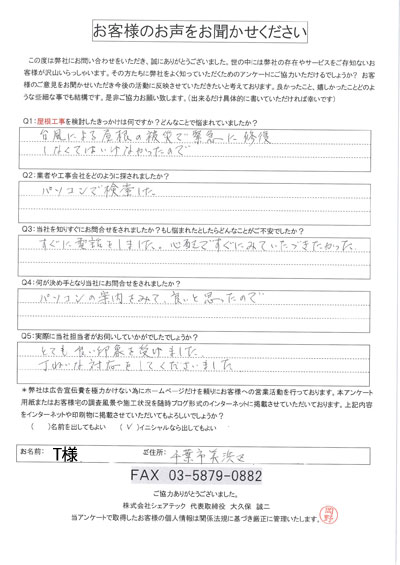 お客様のお声をお聞かせください
この度は弊社にお問い合わせをいただき、誠にありがとうございました。世の中には弊社の存在やサービスをご存知ないお
客様が沢山いらっしゃいます。その方たちに弊社をよく知っていただくためのアンケートにご協力いただけるでしょうか？ お客
様のご意見をお聞かせいただき今後の活動に反映させていただきたいと考えております。良かったこと、嬉しかったことどのよ
うな些細な事でも結構です。是非ご協力お願い致します。(出来るだけ具体的に書いていただければ幸いです)
Q1:屋根工事を検討したきっかけは何ですか？どんなことで悩まれていましたか？
台風による屋根の被災で緊急に修復
しなくてはいけなかったので
Q2:業者や工事会社をどのように探されましたか？
パソコンで検索した。
Q3:当社を知りすぐにお問合せをされましたか？もし悩まれたとしたらどんなことがご不安でしたか？
すぐに電話をしました。心配ですぐにみていただきたかった
Q4:何が決め手となり当社にお問合せをされましたか？
パソコンの案内をみて、良いと思ったので
Q5:実際に当社担当者がお伺いしていかがでしたでしょうか？
とても良い印象を受けました
丁ねいな対応をしてくださいました
＊弊社は広告宣伝費を極力かけない為にホームページだけを頼りにお客様への営業活動を行っております。本アンケート
用紙またはお客様宅の調査風景や施工状況を随時ブログ形式のインターネットに掲載させていただいております。上記内容
をインターネットや印刷物に掲載させていただいてもよろしいでしょうか？
( )名前を出してもよい (✓)イニシャルなら出してもよい
お名前: T様 ご住所: 千葉市美浜区
FAX 03-5879-0882
ご協力ありがとうございました。
株式会社シェアテック 代表取締役 大久保 誠二
当アンケートで取得したお客様の個人情報は関係法規に基づき厳正に管理いたします。